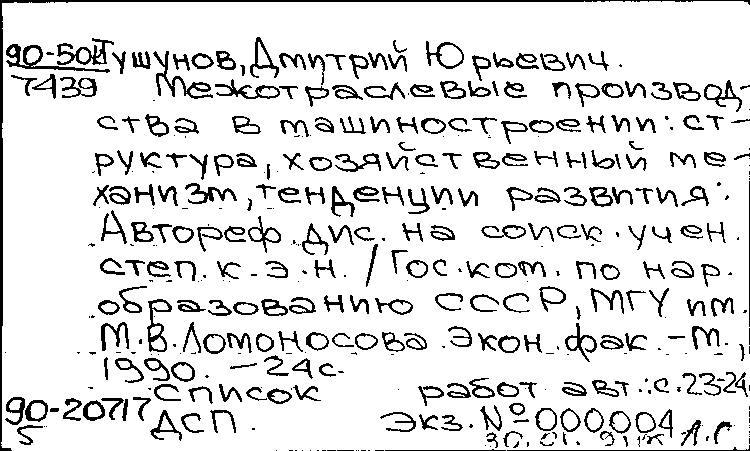 90-50И Тушунов, Дмитрий Юрьевич.
7439 Межотраслевые производ-
ства в машиностроении: ст-
руктура, хозяйственный ме-
ханизм, тенденции развития:
Автореф. дис. на соиск. учен.
степ. к. э. н. / Гос. ком. по нар.
образованию СССР, МГУ им.
М.В.Ломоносова. Экон. фак. - М.,
1990. - 24 с.
Список работ авт.: с. 23-24
90-20717 ДСП. Экз. № 000004
5 30.01.91